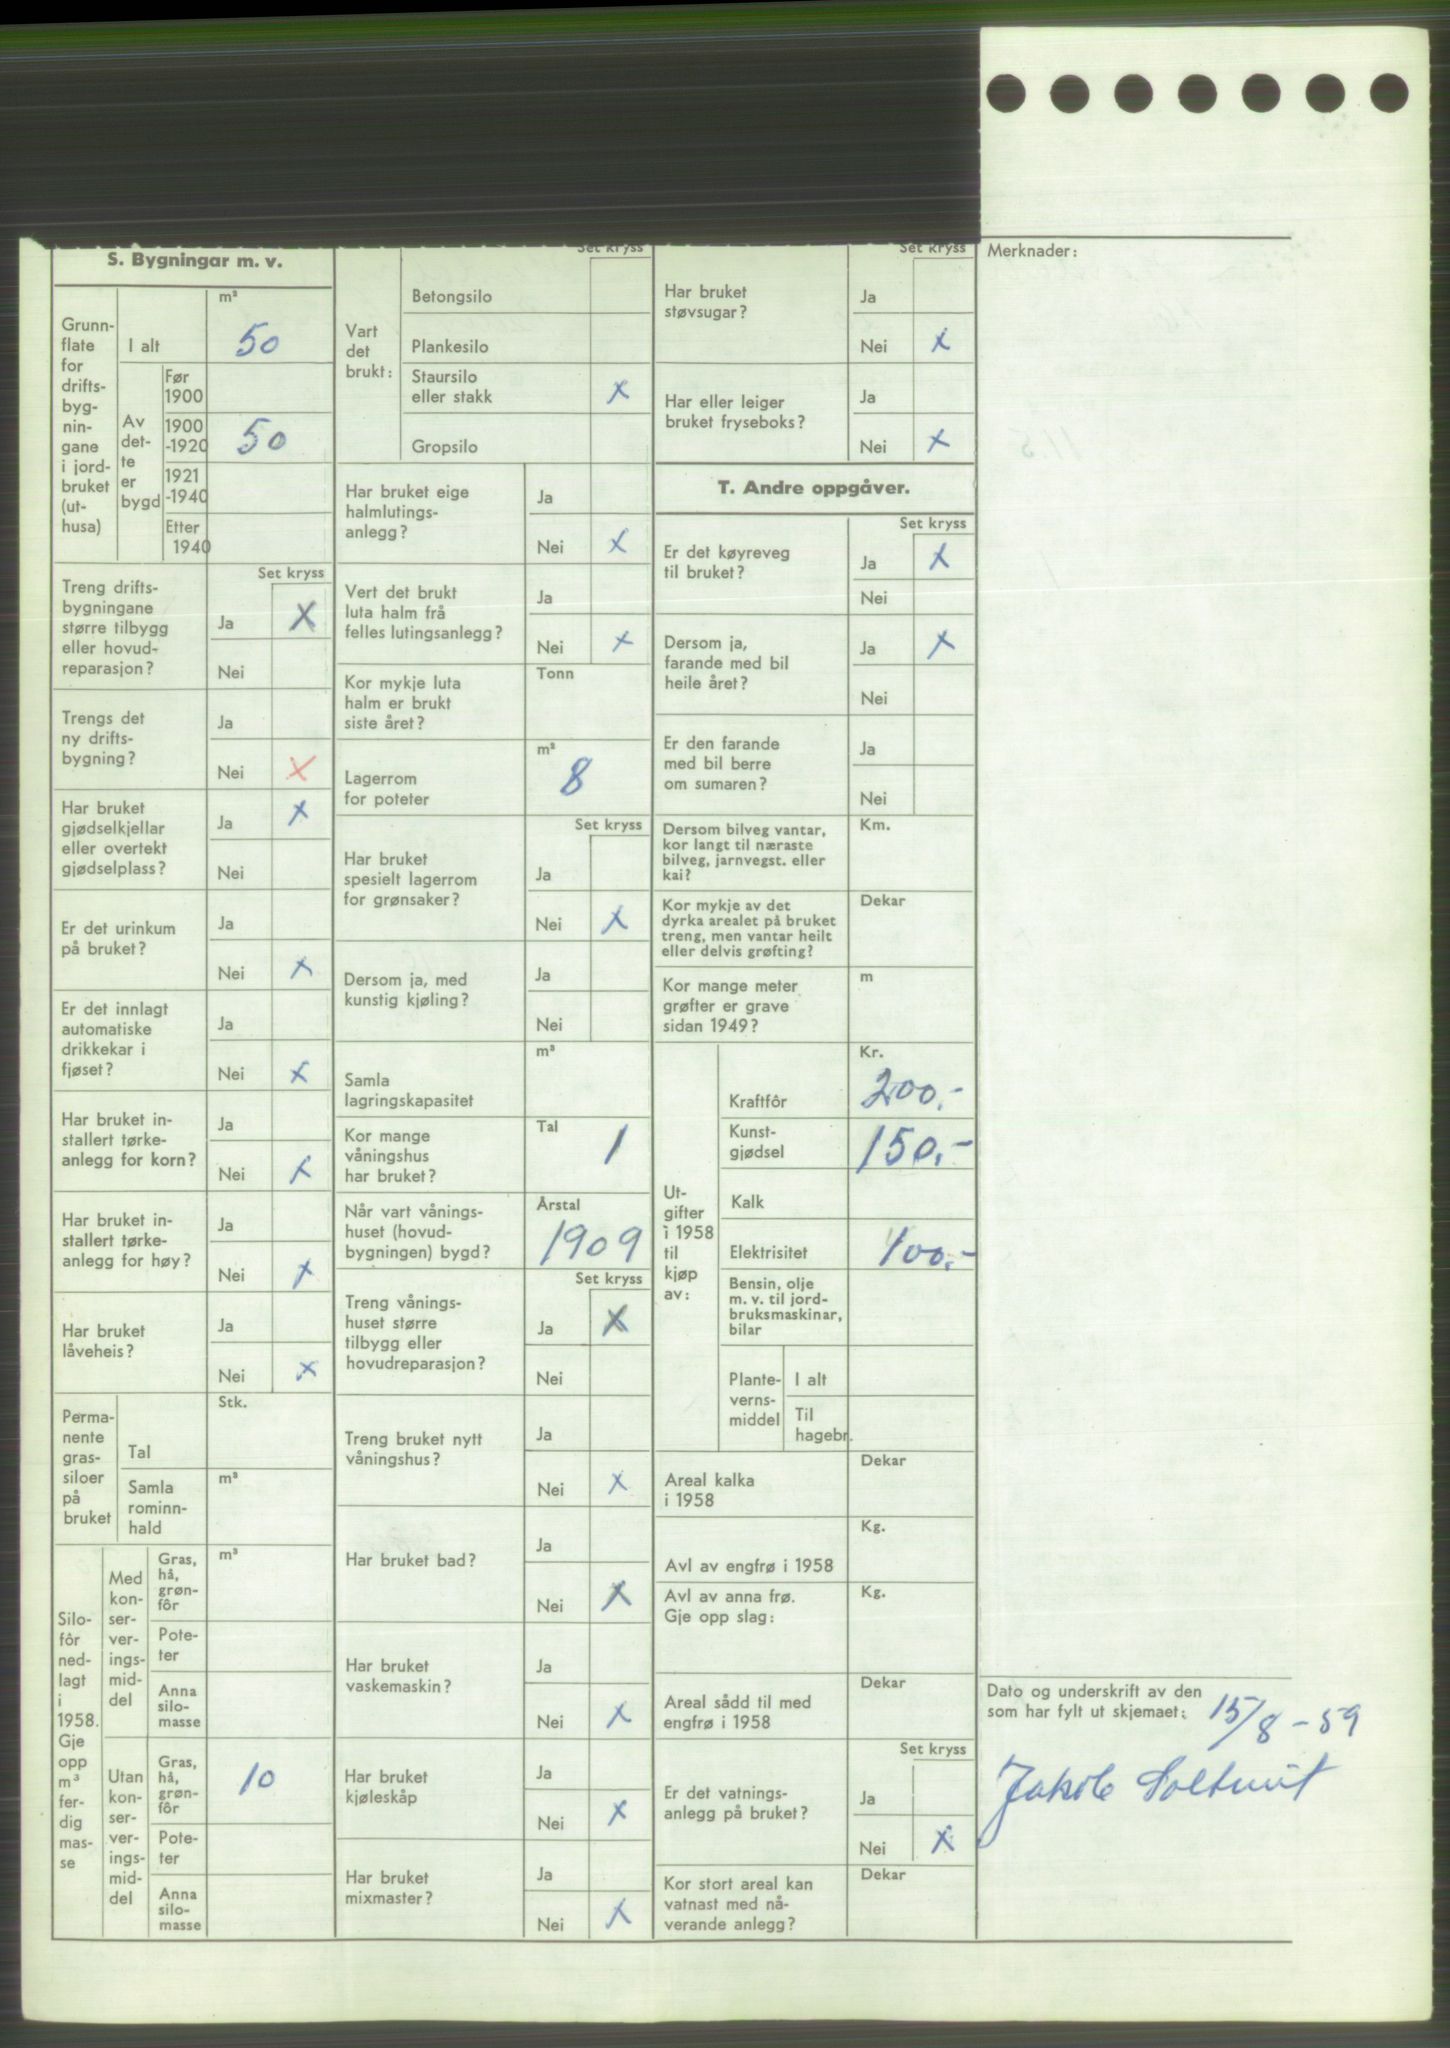 S. Bygningar m. v.
Grunn-
flate
for
drifts-
byg-
nin-
gane
i jord-
bruket
(ut-
husa)
m²
I alt 50
Av
det-
te
er
bygd
Før
1900
1900
-1920 50
1921
-1940
Etter
1940
Set kryss
Treng drifts-
bygningane
større tilbygg
eller hovud-
reparasjon?
Ja X
Nei
Trengs det
ny drifts-
bygning?
Ja
Nei X
Har bruket
gjødselkjellar
eller overtekt
gjødselplass?
Ja X
Nei
Er det urinkum
på bruket?
Ja
Nei X
Er det innlagt
automatiske
drikkekar i
fjøset?
Ja
Nei X
Har bruket in-
stallert tørke-
anlegg for korn?
Ja
Nei X
Har bruket in-
stallert tørke-
anlegg for høy?
Ja
Nei X
Har bruket
låveheis?
Ja
Nei X
Perma-
nente
gras-
siloer
på
bruket
Stk.
Tal
m³
Samla
rominn-
hald
Silo-
fôr
ned-
lagt
i
1958.
Gje
opp
m³
fer-
dig
mas-
se
Med
kon-
ser-
ver-
ings-
mid-
del
m³
Gras,
hå,
grøn-
fôr
Pote-
ter
Anna
silo-
masse
Utan
kon-
ser-
ver-
ings-
mid-
del
Gras,
hå,
grøn-
fôr 10
Pote-
ter
Anna
silo-
masse
Set kryss
Vart
det
brukt:
Betongsilo
Plankesilo
Staursilo
eller stakk X
Gropsilo
Har bruket eige
halmlutings-
anlegg?
Ja
Nei X
Vert det brukt
luta halm frå
felles lutingsanlegg?
Ja
Nei X
Kor mykje luta
halm er brukt
siste året?
Tonn
Lagerrom
for poteter
m³
8
Set kryss
Har bruket
spesielt lagerrom
for grønsaker?
Ja
Nei X
Dersom ja, med
kunstig kjøling?
Ja
Nei
Samla
lagringskapasitet
m³
Kor mange
våningshus
har bruket?
Tal
1
Når vart vånings-
huset (hovud-
bygningen) bygd?
Årstal
1909
Set kryss
Treng vånings-
huset større
tilbygg eller
hovudreparasjon?
Ja X
Nei
Treng bruket nytt
våningshus?
Ja
Nei X
Har bruket bad?
Ja
Nei X
Har bruket
vaskemaskin?
Ja
Nei X
Har bruket
kjøleskåp
Ja
Nei X
Har bruket
mixmaster?
Ja
Nei X
Set kryss
Har bruket
støvsugar?
Ja
Nei X
Har eller leiger
bruket fryseboks?
Ja
Nei X
T. Andre oppgåver.
Set kryss
Er det køyreveg
til bruket?
Ja X
Nei
Dersom ja,
farande med bil
heile året?
Ja X
Nei
Er den farande
med bil berre
om sumaren?
Ja
Nei
Dersom bilveg vantar,
kor langt til næraste
bilveg, jarnvegst. eller
kai?
Km.
Kor mykje av det
dyrka arealet på bruket
treng, men vantar heilt
eller delvis grøfting?
Dekar
Kor mange meter
grøfter er grave
sidan 1949?
m
Ut-
gifter
i 1958
til
kjøp
av:
Kr.
Kraftfôr 200.-
Kunst-
gjødsel 150.-
Kalk
Elektrisitet 100.-
Bensin, olje
m. v. til jord-
bruksmaskinar,
bilar
Plante-
verns-
middel
I alt
Til
hagebr.
Areal kalka
i 1958
Dekar
Avl av engfrø i 1958
Kg.
Avl av anna frø.
Gje opp slag:
Kg.
Areal sådd til med
engfrø i 1958
Dekar
Set kryss
Er det vatnings-
anlegg på bruket?
Ja
Nei X
Kor stort areal kan
vatnast med nå-
verande anlegg?
Dekar
Merknader:
Dato og underskrift av den
som har fylt ut skjemaet: 15/8-59
Jakob